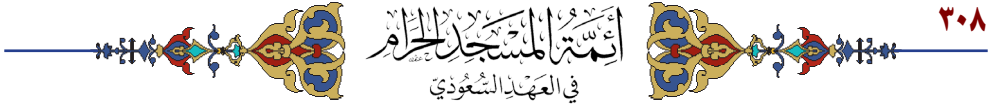 ٣٠٨
أَئِمَّةُ المَسْجِدِ الحَرَامِ
في العَهْدِ السُّعُودِيّ